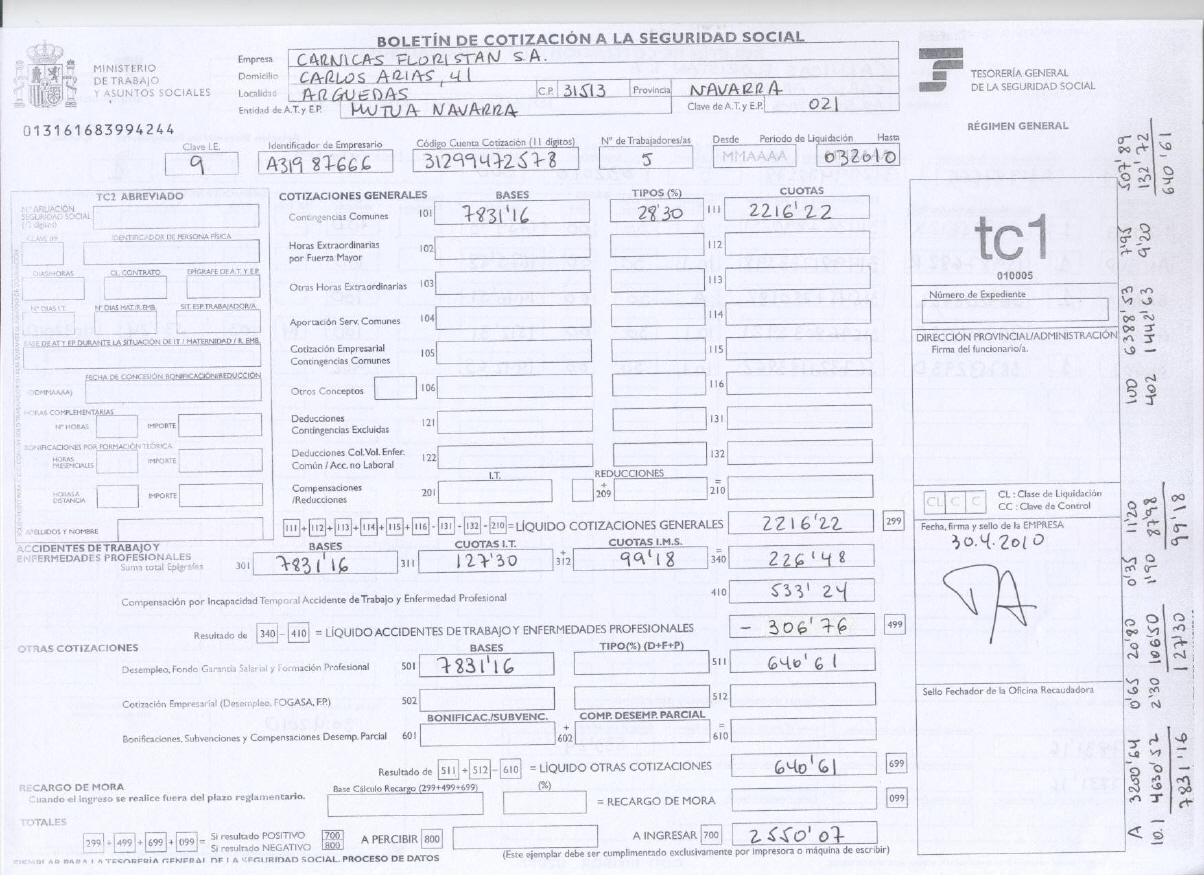 BOLETÍN DE COTIZACIÓN A LA SEGURIDAD SOCIAL
MINISTERIO
DE TRABAJO
Y ASUNTOS SOCIALES
Empresa CARNICAS FLORISTAN S.A.
Domicilio CARLOS ARIAS, 41
Localidad ARGUEDAS C.P. 31513 Provincia NAVARRA
Entidad de A.T. y E.P. MUTUA NAVARRA Clave de A.T. y E.P. 021
TESORERÍA GENERAL
DE LA SEGURIDAD SOCIAL
RÉGIMEN GENERAL
013161683994244
Clave I.E. Identificador de Empresario Código Cuenta Cotización (11 dígitos) Nº de Trabajadores/as Desde Periodo de Liquidación Hasta
9 A31987666 31299472578 5 MMAAAA 032010
TC2 ABREVIADO
Nº AFILIACIÓN
SEGURIDAD SOCIAL
IDENTIFICADOR DE PERSONA FÍSICA
DIAS/HORAS CL. CONTRATO EPÍGRAFE DE A.T. Y E.P.
Nº DIAS I.T. Nº DIAS MAT./R. EMB. SIT. ESP. TRABAJADOR/A
BASE DE AT Y EP DURANTE LA SITUACIÓN DE IT / MATERNIDAD / R. EMB.
FECHA DE CONCESIÓN BONIFICACIÓN/REDUCCIÓN
(DDMMAAAA)
HORAS COMPLEMENTARIAS
Nº HORAS IMPORTE
BONIFICACIONES POR FORMACIÓN TEÓRICA
HORAS
PRESENCIALES IMPORTE
HORAS A
DISTANCIA IMPORTE
APELLIDOS Y NOMBRE
COTIZACIONES GENERALES BASES TIPOS (%) CUOTAS
Contingencias Comunes 101 7831'16 28'30 111 2216'22
Horas Extraordinarias
por Fuerza Mayor 102 112
Otras Horas Extraordinarias 103 113
Aportación Serv. Comunes 104 114
Cotización Empresarial
Contingencias Comunes 105 115
Otros Conceptos 106 116
Deducciones
Contingencias Excluidas 121 131
Deducciones Col. Vol. Enfer.
Común / Acc. no Laboral 122 132
I.T. REDUCCIONES
Compensaciones
/Reducciones 201 + 209 = 210
111 + 112 + 113 + 114 + 115 + 116 - 131 - 132 - 210 = LÍQUIDO COTIZACIONES GENERALES 2216'22 299
ACCIDENTES DE TRABAJO Y
ENFERMEDADES PROFESIONALES BASES CUOTAS I.T. CUOTAS I.M.S.
Suma total Epígrafes 301 7831'16 311 127'30 + 312 99'18 = 340 226'48
Compensación por Incapacidad Temporal Accidente de Trabajo y Enfermedad Profesional 410 533'24
Resultado de 340 - 410 = LÍQUIDO ACCIDENTES DE TRABAJO Y ENFERMEDADES PROFESIONALES - 306'76 499
OTRAS COTIZACIONES BASES TIPO(%) (D+F+P)
Desempleo, Fondo Garantía Salarial y Formación Profesional 501 7831'16 511 640'61
Cotización Empresarial (Desempleo, FOGASA, F.P.) 502 512
BONIFICAC./SUBVENC. COMP. DESEMP. PARCIAL
Bonificaciones, Subvenciones y Compensaciones Desemp. Parcial 601 + 602 = 610
Resultado de 511 + 512 - 610 = LÍQUIDO OTRAS COTIZACIONES 640'61 699
RECARGO DE MORA
Cuando el ingreso se realice fuera del plazo reglamentario. Base Cálculo Recargo (299+499+699) (%) = RECARGO DE MORA 099
TOTALES
299 + 499 + 699 + 099 = Si resultado POSITIVO 700
Si resultado NEGATIVO 800 A PERCIBIR 800 A INGRESAR 700 2550'07
EJEMPLAR PARA LA TESORERÍA GENERAL DE LA SEGURIDAD SOCIAL. PROCESO DE DATOS
(Este ejemplar debe ser cumplimentado exclusivamente por impresora o máquina de escribir)
tc1
010005
Número de Expediente
DIRECCIÓN PROVINCIAL/ADMINISTRACIÓN
Firma del funcionario/a.
CL C C
CL : Clase de Liquidación
CC : Clave de Control
Fecha, firma y sello de la EMPRESA
30.4.2010
PA
Sello Fechador de la Oficina Recaudadora
A 3200'64 0'65 20'80 0'35 11'20
10.1 4630'52 2'30 106'50 1'90 87'98
7831'16 127'30 99'18
100 6388'53 7'95 507'89
402 1442'63 9'20 132'72
640'61